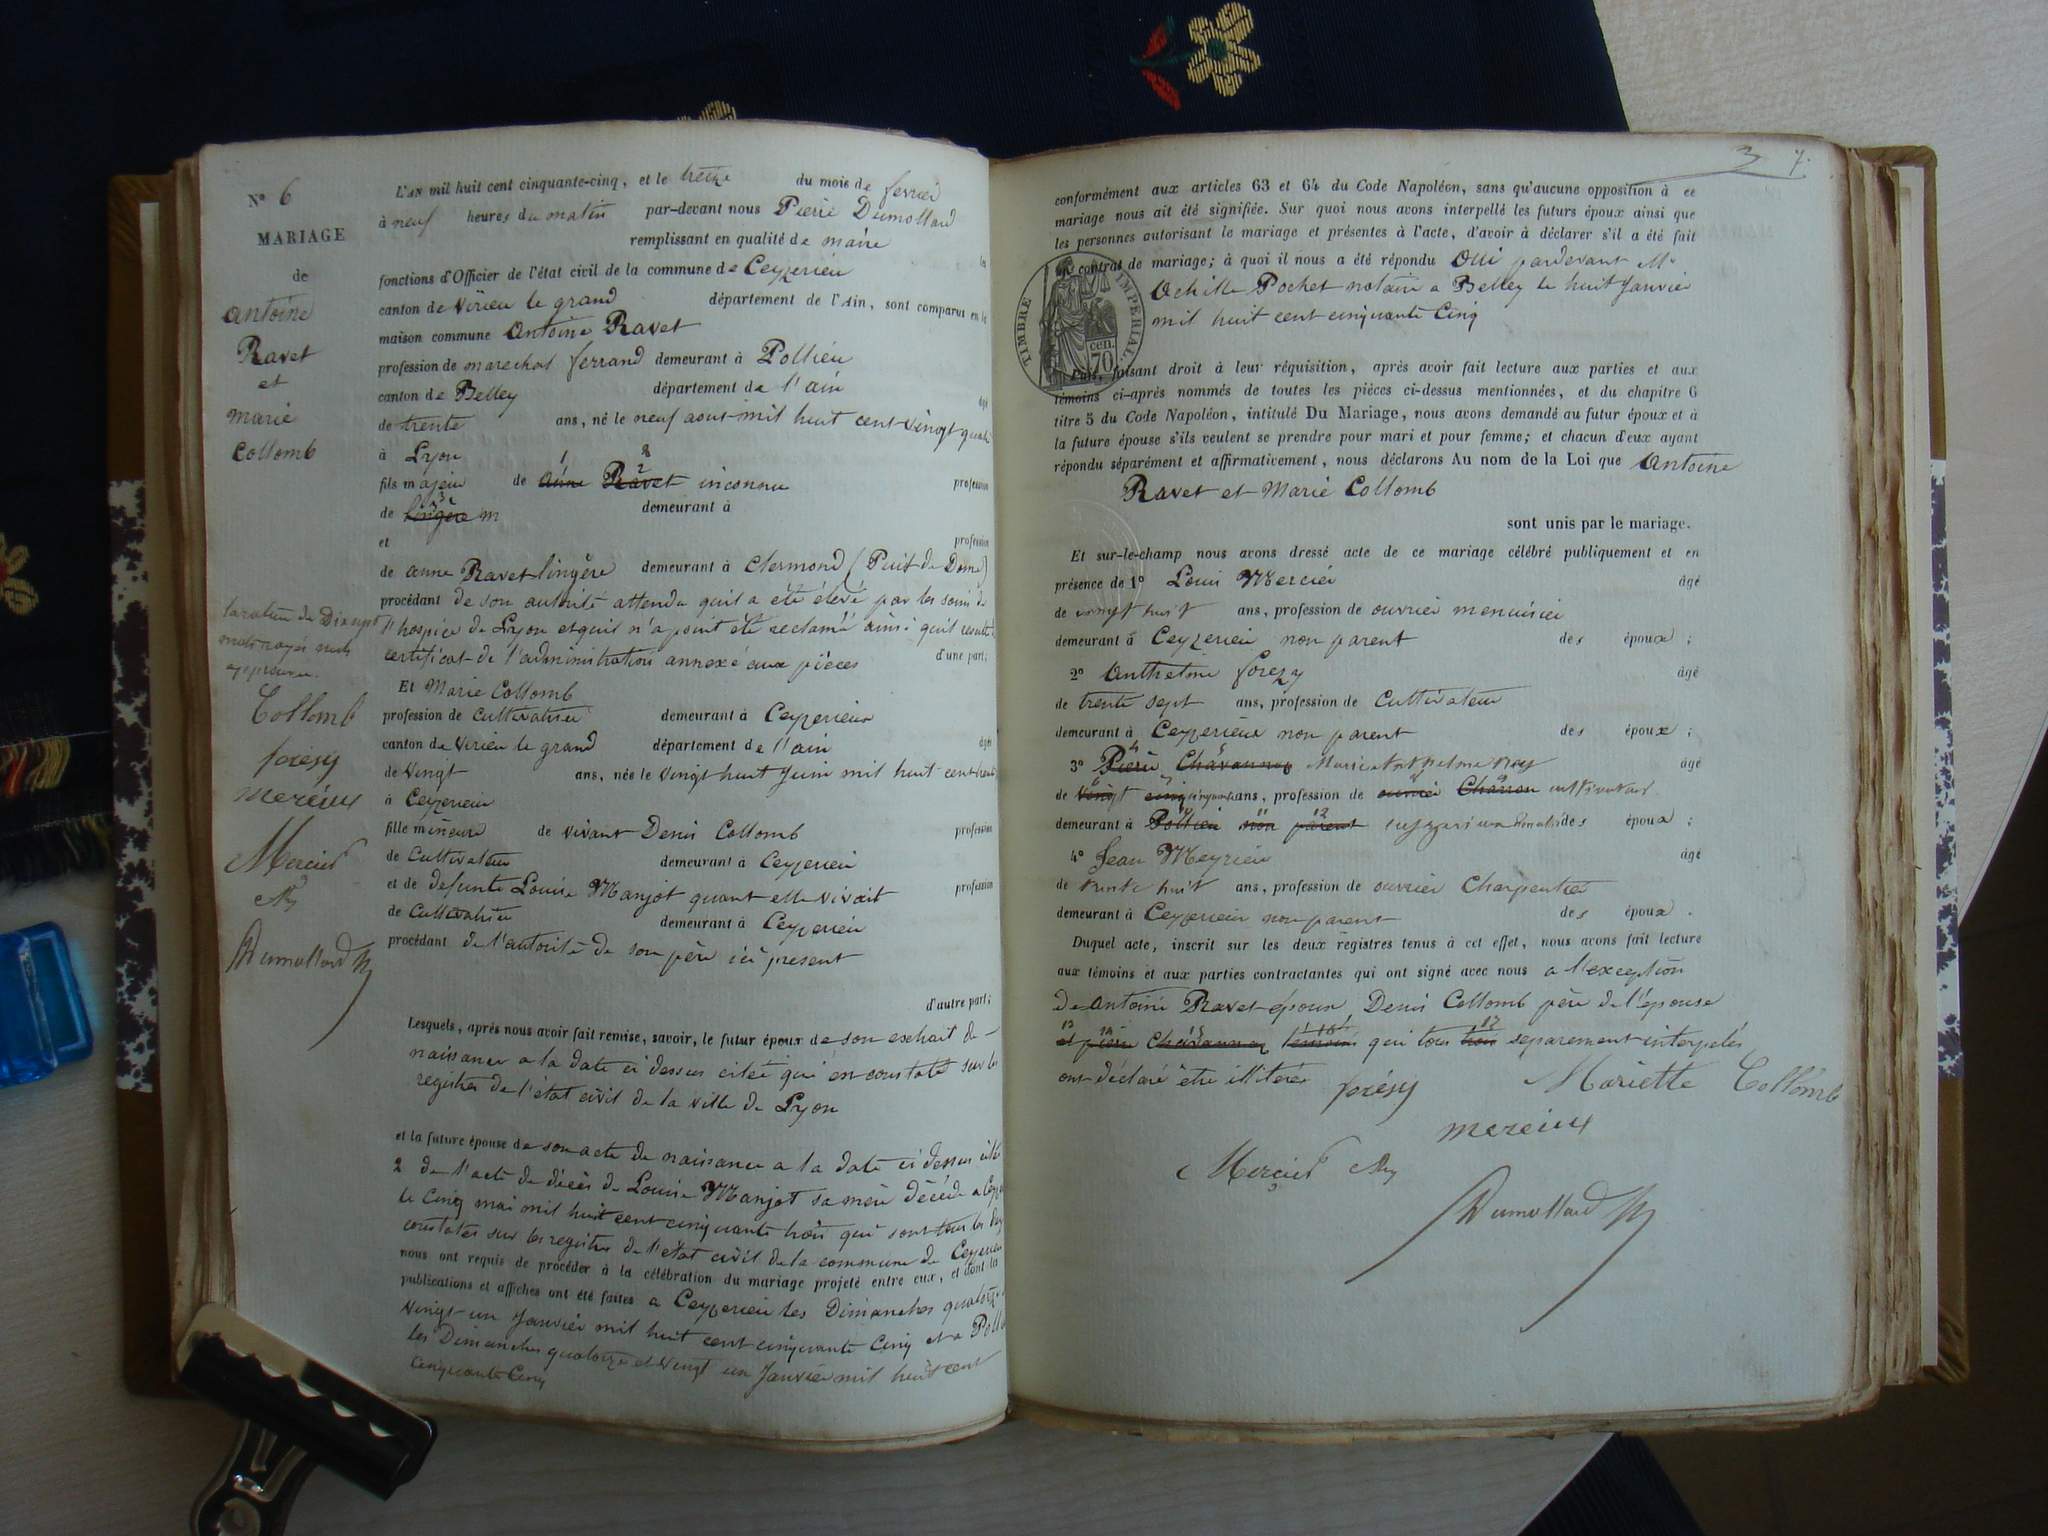 N° 6
MARIAGE
de
Antoine
Ravet
et
marie
Collomb
L'AN mil huit cent cinquante-cinq, et le treize du mois de fevrier
à neuf heures du matin par-devant nous Pierre Dumollard
remplissant en qualité de maire les
fonctions d'Officier de l'état civil de la commune de Ceyzerieu
canton de Virieu le grand département de l'Ain, sont comparus en la
maison commune Antoine Ravet
profession de marechal ferrand demeurant à Pollieu
canton de Belley département de l'ain âgé
de trente ans, né le neuf aout mil huit cent vingt quatre
à Lyon
fils majeur de anne Ravet inconnu profession
de lingère m demeurant à
et profession
de anne Ravet lingère demeurant à Clermond (Puit de Dome)
procédant de son autorité attendu quil a été élevé par les soins de
l'hospice de Lyon et quil n'a point été réclamé ainsi quil résulte
certificat de l'administration annexé aux pièces d'une part;
la rature de Dix sept
mots rayés nuls
approuvée.
Collomb
forésy
mereieux
Mercier
Dumollard
Et Marie Collomb
profession de cultivatrice demeurant à Ceyzerieu
canton de Virieu le grand département de l'ain âgée
de vingt ans, née le vingt huit Juin mil huit cent trente
à Ceyzerieu
fille mineure de vivant Denis Collomb profession
de cultivateur demeurant à Ceyzerieu
et de defunte Louise Manjot quant elle vivait profession
de cultivatrice demeurant à Ceyzerieu
procédant de l'autorité de son père ici present
d'autre part;
Lesquels, après nous avoir fait remise, savoir, le futur époux de son extrait de
naissance a la date ci dessus citée qui est constaté sur les
registres de l'état civil de la ville de Lyon
et la future épouse de son acte de naissance a la date ci dessus citée
2 de l'acte de décès de Louise Manjot sa mère décédée a Ceyz
le cinq mai mil huit cent cinquante trois qui sont tous les deux
constatés sur les registres de l'état civil de la commune de Ceyzerieu
nous ont requis de procéder à la célébration du mariage projeté entre eux, et dont les
publications et affiches ont été faites a Ceyzerieu les Dimanches quatorze
vingt un Janvier mil huit cent cinquante cinq et a Poll
les Dimanches quatorze et vingt un Janvier mil huit cent
cinquante cinq
3 7.
conformément aux articles 63 et 64 du Code Napoléon, sans qu'aucune opposition à ce
mariage nous ait été signifiée. Sur quoi nous avons interpellé les futurs époux ainsi que
les personnes autorisant le mariage et présentes à l'acte, d'avoir à déclarer s'il a été fait
un contrat de mariage; à quoi il nous a été répondu Oui pardevant Me
Achille Pochet notaire a Belley le huit Janvier
mil huit cent cinquante Cinq
TIMBRE IMPÉRIAL
70 cen.
Puis, faisant droit à leur réquisition, après avoir fait lecture aux parties et aux
témoins ci-après nommés de toutes les pièces ci-dessus mentionnées, et du chapitre 6
titre 5 du Code Napoléon, intitulé Du Mariage, nous avons demandé au futur époux et à
la future épouse s'ils veulent se prendre pour mari et pour femme; et chacun d'eux ayant
répondu séparément et affirmativement, nous déclarons Au nom de la Loi que Antoine
Ravet et Marie Collomb
sont unis par le mariage.
Et sur-le-champ nous avons dressé acte de ce mariage célébré publiquement et en
présence de 1° Louis Mercier âgé
de vingt huit ans, profession de ouvrier menuisier
demeurant à Ceyzerieu non parent des époux;
2° Anthelme forezy âgé
de trente sept ans, profession de Cultivateur
demeurant à Ceyzerieux non parent des époux;
3° Pierre Chavannes âgé
de vingt cinq ans, profession de ouvrier Charron cultivateur
demeurant à Pollieu non parent des époux;
4° Jean Meyrieu âgé
de trente huit ans, profession de ouvrier Charpentier
demeurant à Ceyzerieu non parent des époux.
Duquel acte, inscrit sur les deux registres tenus à cet effet, nous avons fait lecture
aux témoins et aux parties contractantes qui ont signé avec nous a l'exception
de Antoine Ravet époux, Denis Collomb père de l'épouse
et pierre Chavannes temoins qui tous trois separement interpelés
ont déclaré être illiterés
forésy Mariette Collomb
mereieux
Mercier
Dumollard